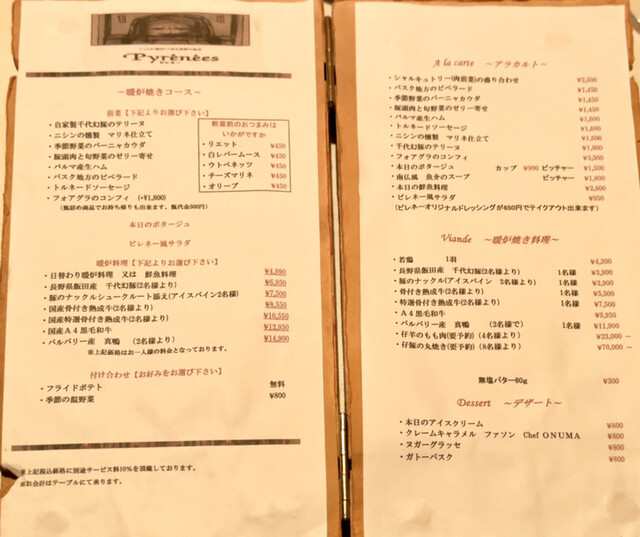 Pyrénées
～暖炉焼きコース～
前菜【下記よりお選び下さい】
・自家製千代幻豚のテリーヌ
・ニシンの燻製　マリネ仕立て
・季節野菜のバーニャカウダ
・豚頭肉と旬野菜のゼリー寄せ
・パルマ産生ハム
・バスク地方のピペラード
・トルネードソーセージ
・フォアグラのコンフィ　(+¥1,800)
(瓶詰め商品でお持ち帰りも出来ます。瓶代金500円)
前菜前のおつまみは
いかがですか
・リエット ¥450
・白レバームース ¥450
・ウトペネッツ ¥450
・チーズマリネ ¥450
・オリーブ ¥450
本日のポタージュ
ピレネー風サラダ
暖炉料理【下記よりお選び下さい】
・日替わり暖炉料理　又は　鮮魚料理 ¥4,890
・長野県飯田産　千代幻豚(2名様より) ¥6,950
・豚のナックルシュークルート添え(アイスバイン2名様) ¥7,500
・国産骨付き熟成牛(2名様より) ¥8,550
・国産特選骨付き熟成牛(2名様より) ¥10,550
・国産A4黒毛和牛 ¥12,950
・バルバリー産　真鴨　(2名様より) ¥14,900
※上記価格はお一人様の料金となっております。
付け合わせ【お好みをお選び下さい】
・フライドポテト 無料
・季節の温野菜 ¥800
※上記税込価格に別途サービス料10%を頂戴しております。
※お会計はテーブルにて承ります。
A la carte　～アラカルト～
・シャルキュトリー(肉前菜)の盛り合わせ ¥2,500
・バスク地方のピペラード ¥1,450
・季節野菜のバーニャカウダ ¥1,450
・豚頭肉と旬野菜のゼリー寄せ ¥1,450
・パルマ産生ハム ¥1,600
・トルネードソーセージ
・ニシンの燻製　マリネ仕立て
・千代幻豚のテリーヌ
・フォアグラのコンフィ
・本日のポタージュ カップ ¥900 ピッチャー
・南仏風　魚介のスープ ピッチャー ¥1,800
・本日の鮮魚料理 ¥2,800
・ピレネー風サラダ ¥950
(ピレネーオリジナルドレッシングが850円でテイクアウト出来ます)
Viande　～暖炉焼き料理～
・若鶏　1羽 ¥4,300
・長野県飯田産　千代幻豚(2名様より) 1名様 ¥3,900
・豚のナックル(アイスバイン　2名様より) 1名様 ¥3,900
・骨付き熟成牛(2名様より) 1名様 ¥5,500
・特選骨付き熟成牛(2名様より) 1名様 ¥7,500
・A4黒毛和牛 ¥9,950
・バルバリー産　真鴨　(2名様で) 1名様 ¥11,900
・仔羊のもも肉(要予約)(4名様より) ¥23,000～
・仔豚の丸焼き(要予約)(8名様より) ¥70,000～
無塩バター60g ¥300
Dessert　～デザート～
・本日のアイスクリーム ¥800
・クレームキャラメル　ファソン　Chef ONUMA ¥800
・ヌガーグラッセ ¥800
・ガトーバスク ¥800